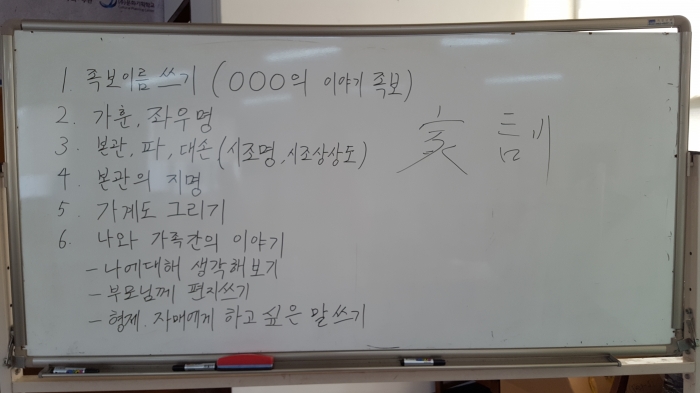 1. 족보이름 쓰기 (OOO의 이야기 족보)
2. 가훈, 좌우명
3. 본관, 파, 대손 (시조명, 시조상상도)
4. 본관의 지명
5. 가계도 그리기
6. 나와 가족간의 이야기
- 나에대해 생각해보기
- 부모님께 편지쓰기
- 형제. 자매에게 하고 싶은 말 쓰기
家訓